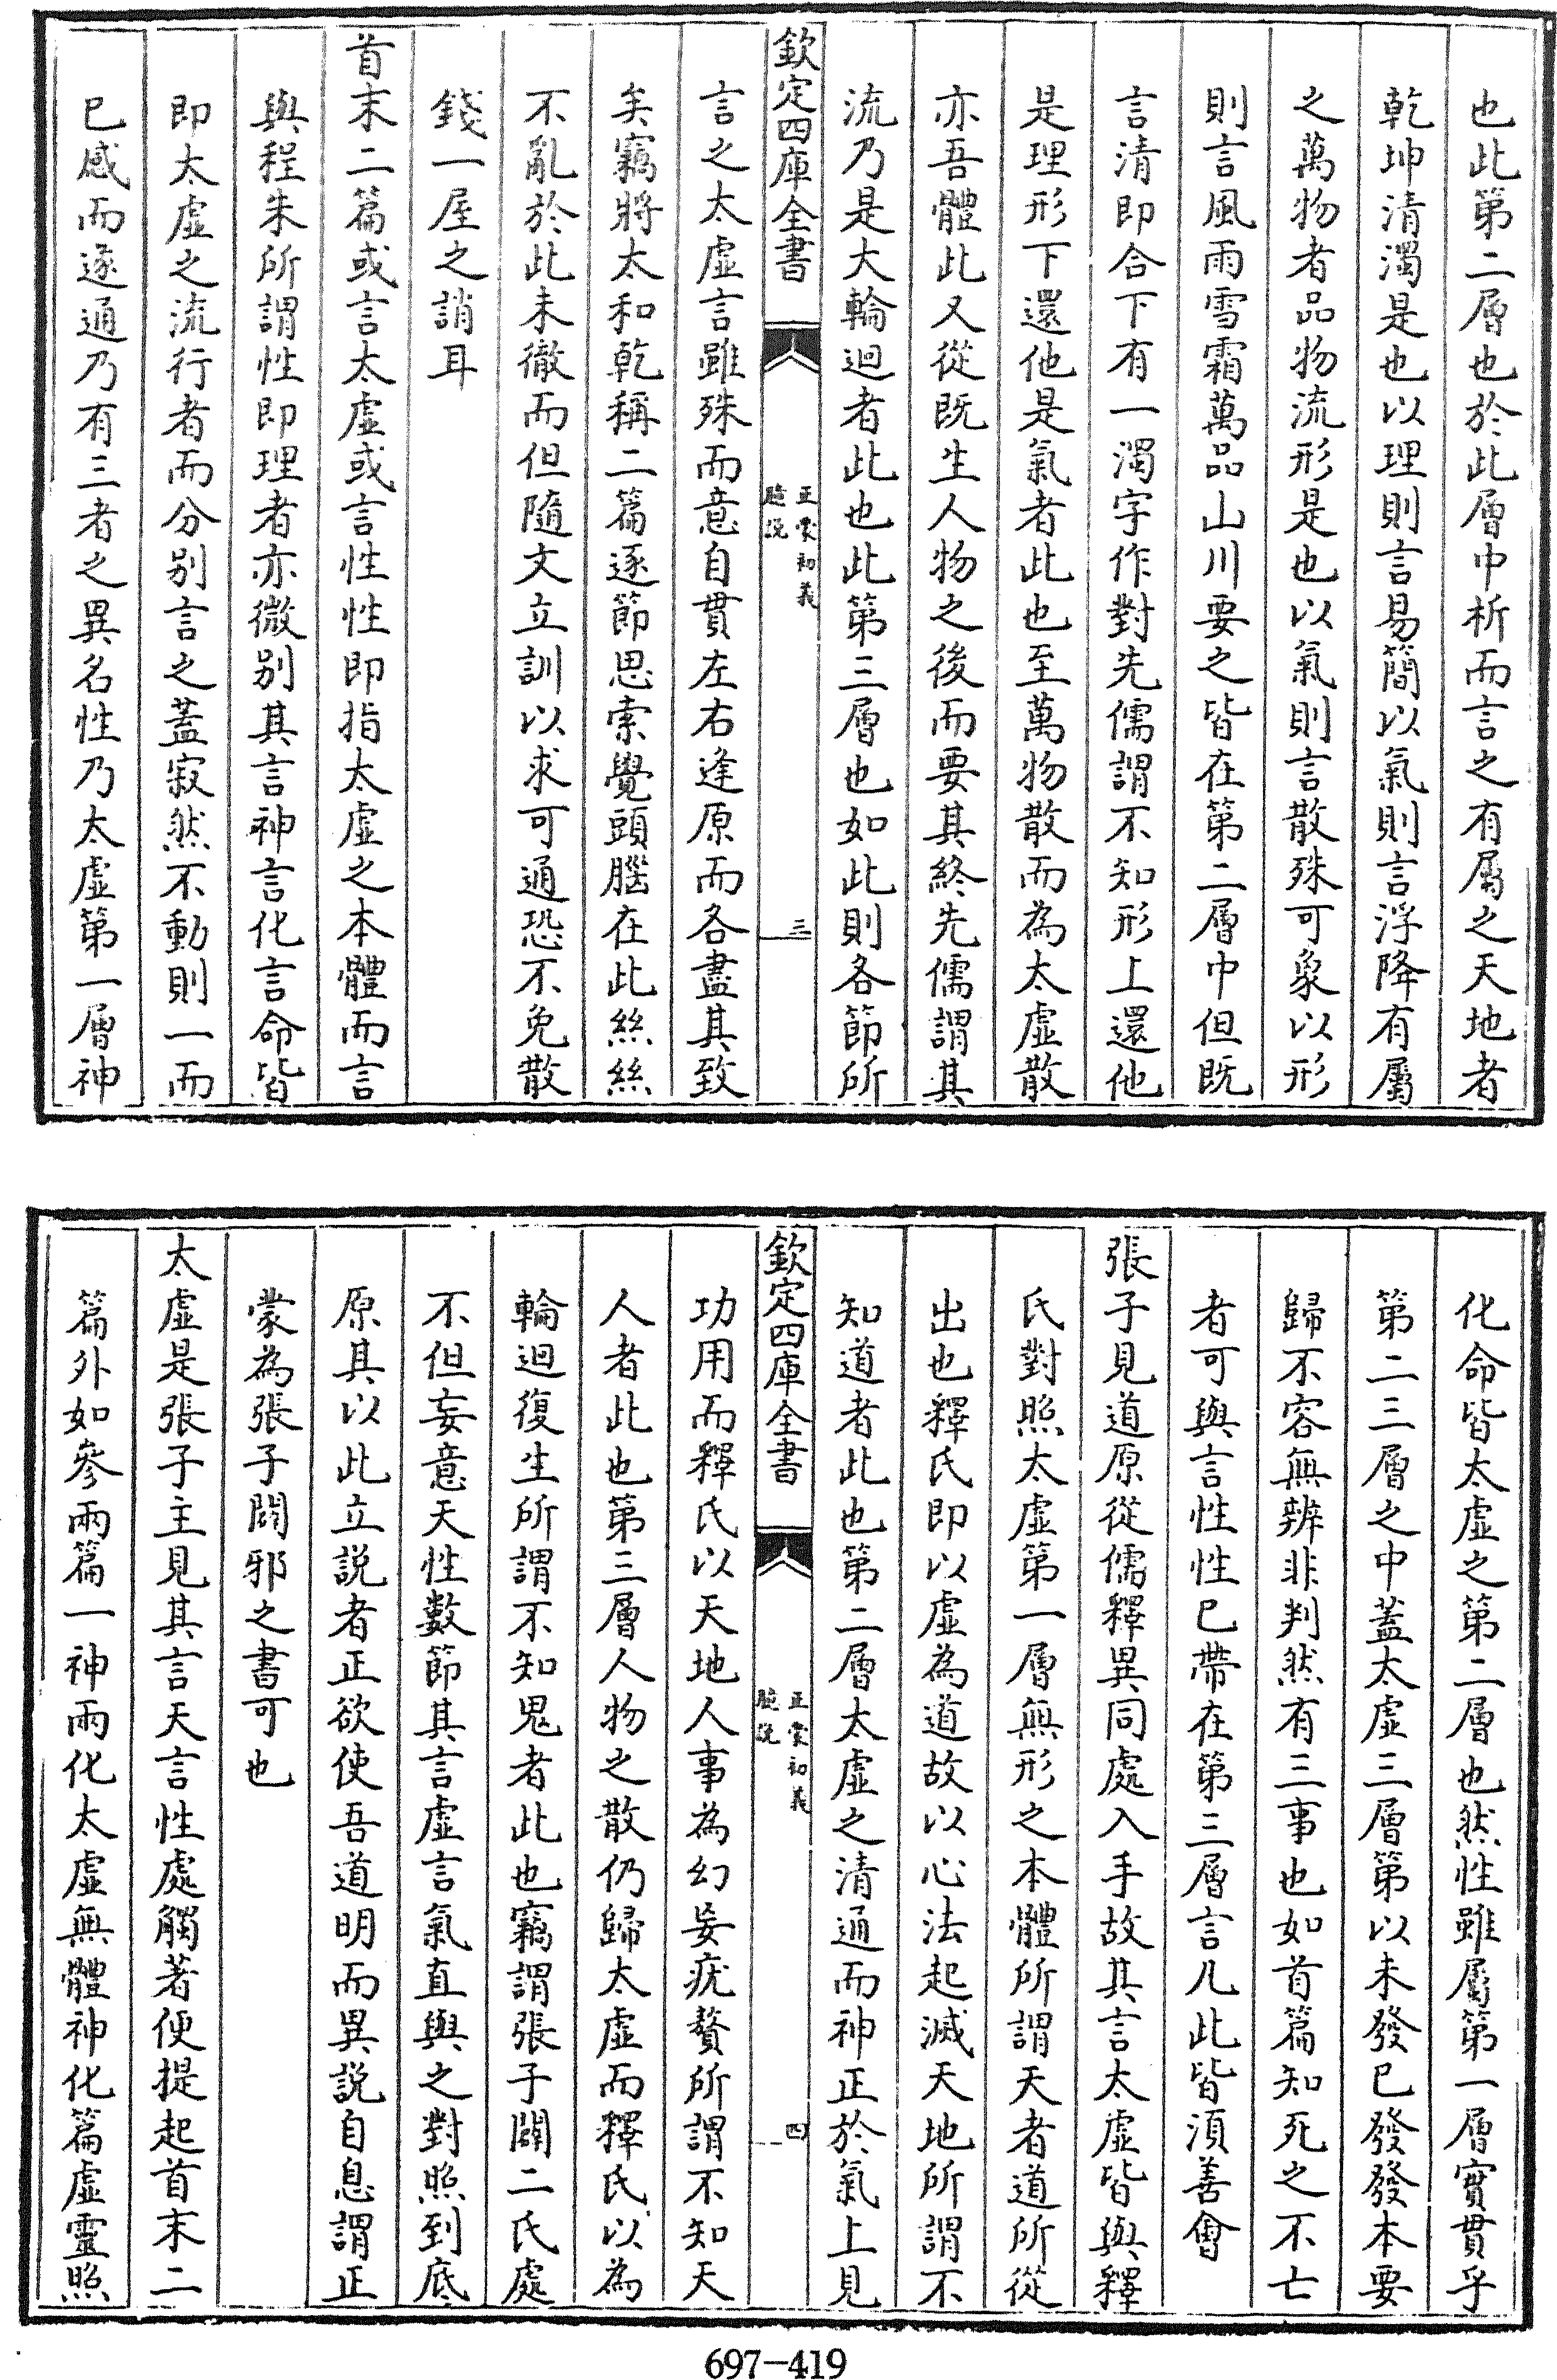 也此第二層也於此層中析而言之有屬之天地者
乾坤清濁是也以理則言易簡以氣則言浮降有屬
之萬物者品物流形是也以氣則言散殊可象以形
則言風雨雪霜萬品山川要之皆在第二層中但既
言清即合下有一濁字作對先儒謂不知形上還他
是理形下還他是氣者此也至萬物散而為太虛散
亦吾體此又從既生人物之後而要其終先儒謂其
流乃是大輪迴者此也此第三層也如此則各節所
欽定四庫全書
正蒙初義
臆說
三
言之太虛言雖殊而意自貫左右逢原而各盡其致
矣竊將太和乾稱二篇逐節思索覺頭腦在此絲絲
不亂於此未徹而但隨文立訓以求可通恐不免散
錢一屋之誚耳
首末二篇或言太虛或言性性即指太虛之本體而言
與程朱所謂性即理者亦微別其言神言化言命皆
即太虛之流行者而分別言之蓋寂然不動則一而
已感而遂通乃有三者之異名性乃太虛第一層神
化命皆太虛之第二層也然性雖屬第一層實貫乎
第二三層之中蓋太虛三層第以未發已發發本要
歸不容無辨非判然有三事也如首篇知死之不亡
者可與言性性已帶在第三層言凡此皆須善會
張子見道原從儒釋異同處入手故其言太虛皆與釋
氏對照太虛第一層無形之本體所謂天者道所從
出也釋氏即以虛為道故以心法起滅天地所謂不
知道者此也第二層太虛之清通而神正於氣上見
欽定四庫全書
正蒙初義
臆說
四
功用而釋氏以天地人事為幻妄疣贅所謂不知天
人者此也第三層人物之散仍歸太虛而釋氏以為
輪迴復生所謂不知鬼者此也竊謂張子闢二氏處
不但妄意天性數節其言虛言氣直與之對照到底
原其以此立說者正欲使吾道明而異說自息謂正
蒙為張子闢邪之書可也
太虛是張子主見其言天言性處觸著便提起首末二
篇外如參兩篇一神兩化太虛無體神化篇虛靈照
697-419